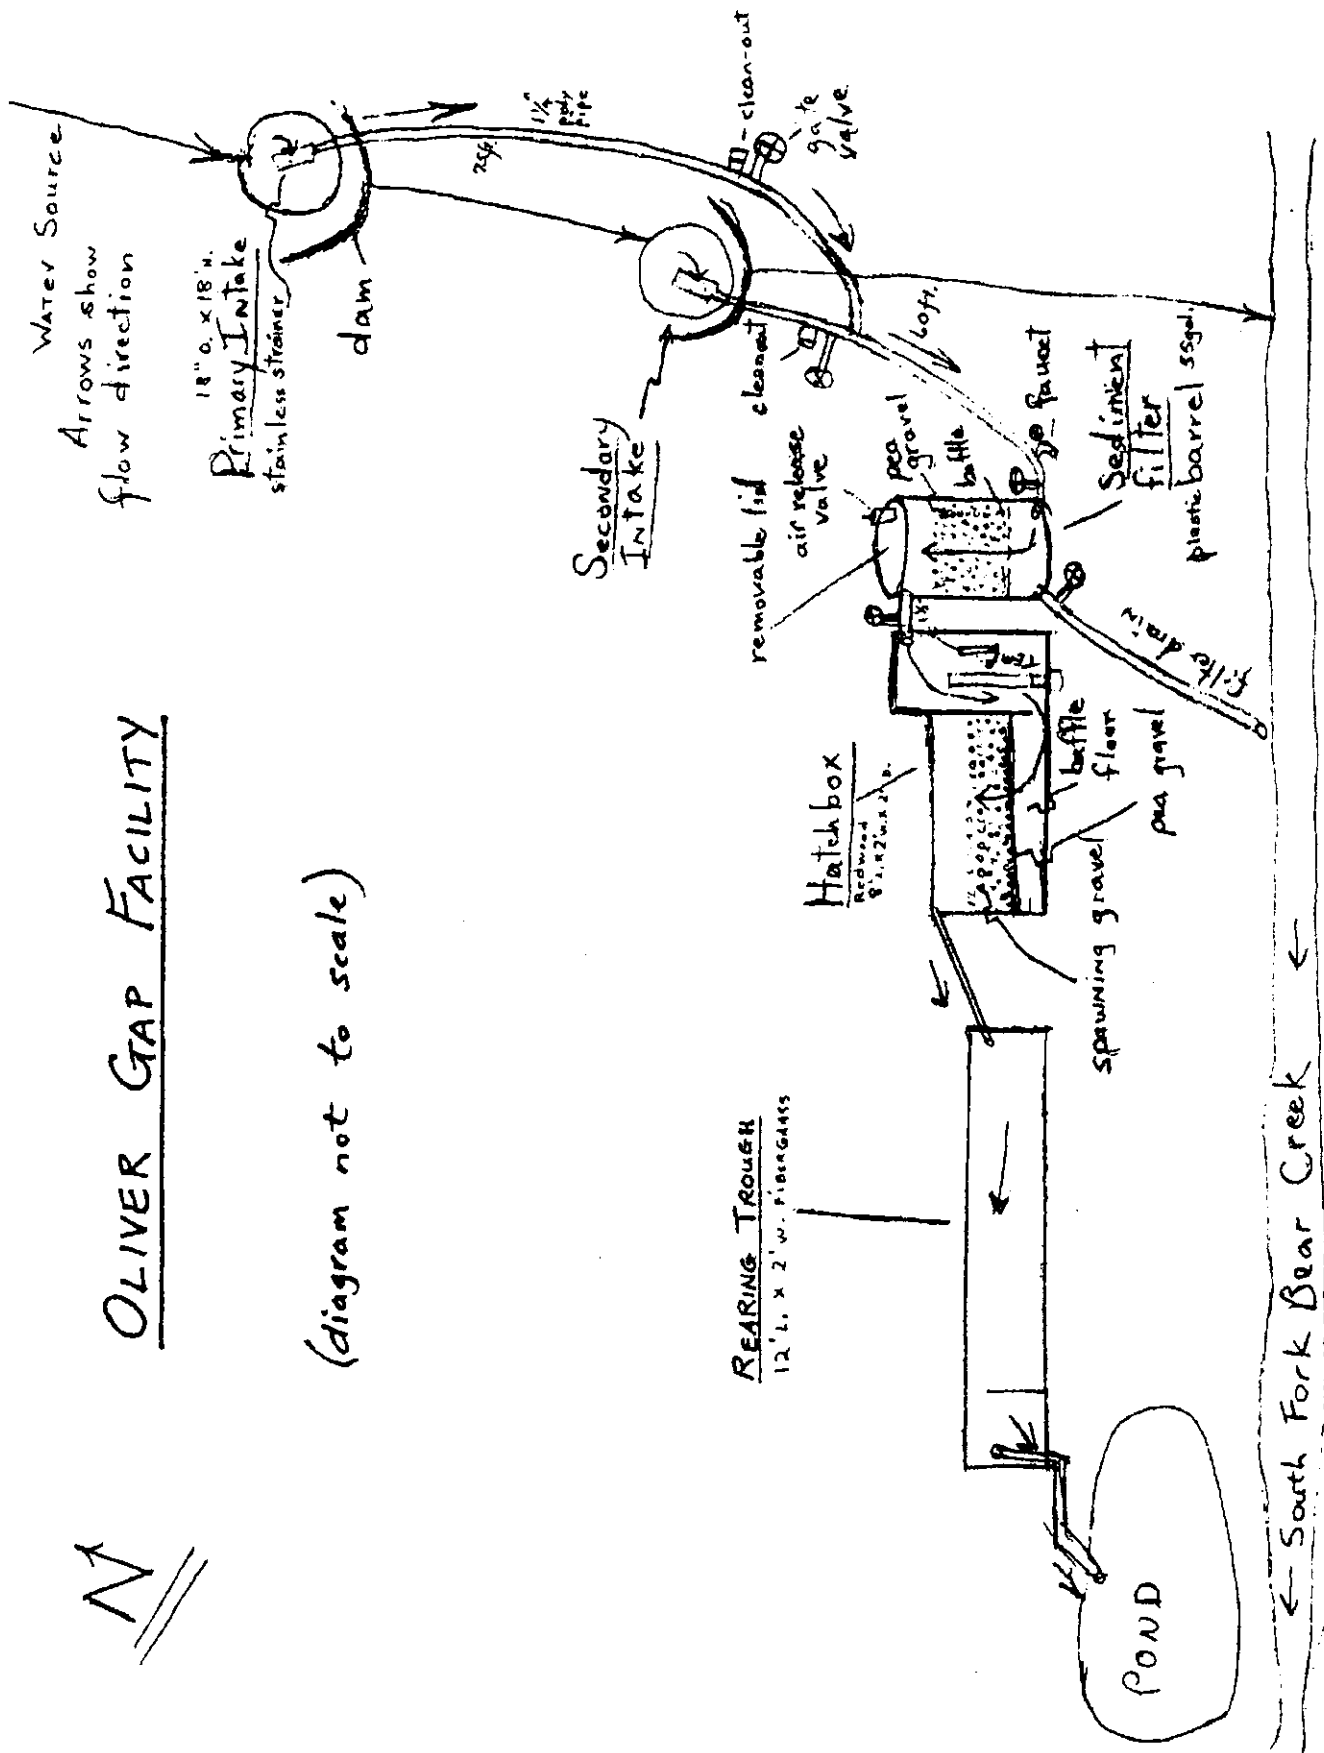 OLIVER GAP FACILITY
(diagram not to scale)
N
WATER Source
Arrows show
flow direction
18" D. x 18" H.
Primary INTake
stainless strainer
dam
1¼"
poly
pipe
clean-out
gate
valve
Secondary
INTake
cleanout
60 ft.
removable lid
air release
valve
pea
gravel
baffle
faucet
Sediment
filter
plastic barrel 55gal.
1½"
filter drain
Hatchbox
Redwood
8' L. x 2' W. x 2' D.
baffle
floor
pea gravel
spawning gravel
REARING TROUGH
12' L. x 2' W. FIBERGLASS
POND
← South Fork Bear Creek ←